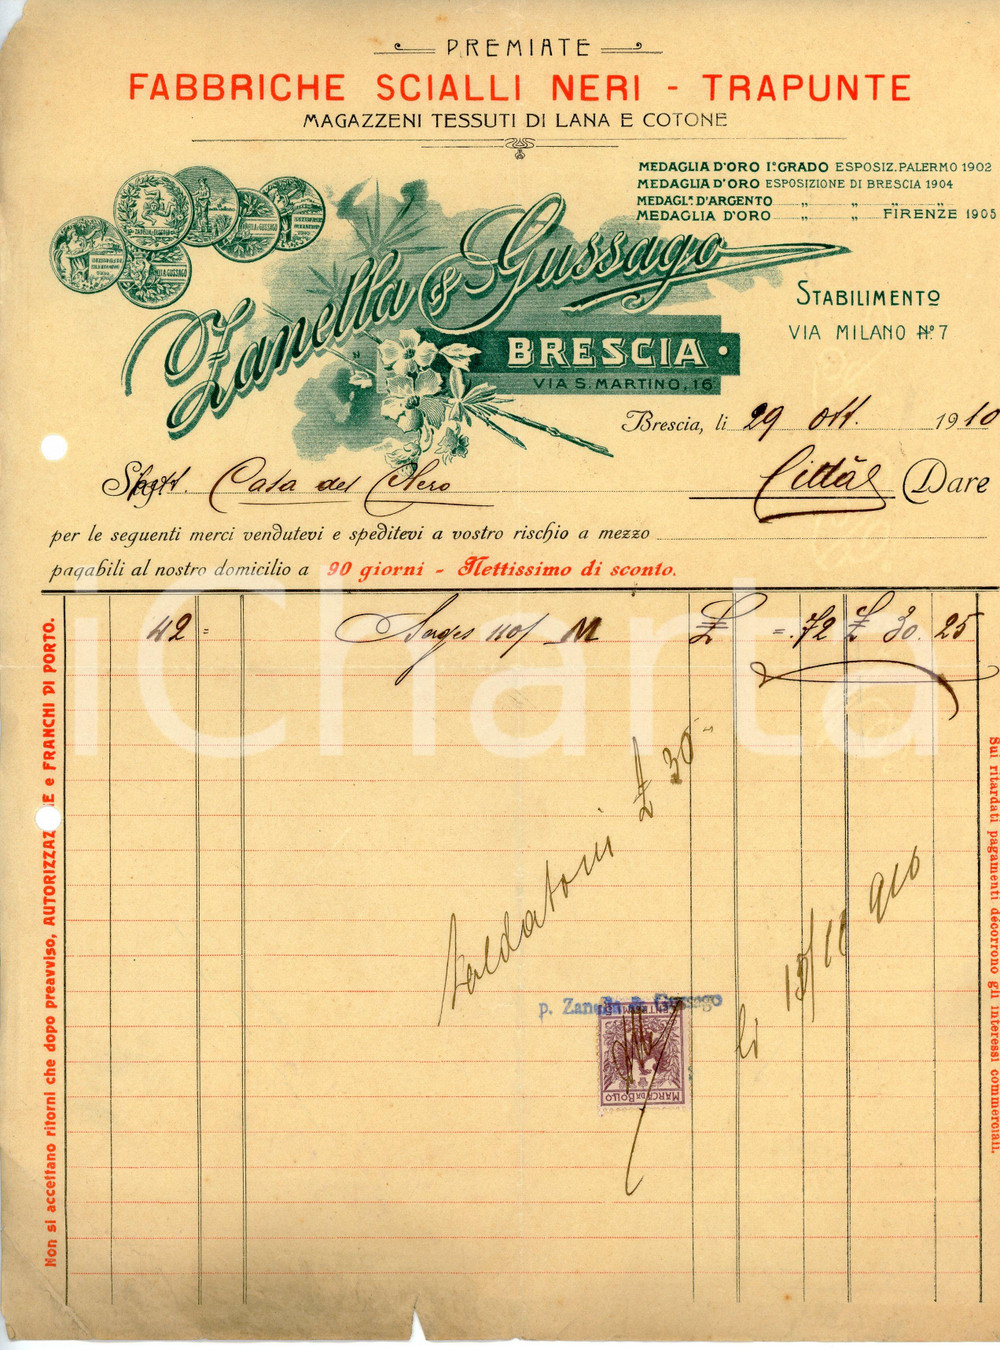 PREMIATE
FABBRICHE SCIALLI NERI - TRAPUNTE
MAGAZZENI TESSUTI DI LANA E COTONE
MEDAGLIA D'ORO I.º GRADO ESPOSIZ. PALERMO 1902
MEDAGLIA D'ORO ESPOSIZIONE DI BRESCIA 1904
MEDAGL.ª D'ARGENTO „ „ „ „
MEDAGLIA D'ORO „ „ FIRENZE 1905
Zanella & Gussago
BRESCIA
VIA S. MARTINO, 16
STABILIMENTO
VIA MILANO Nº. 7
Brescia, li 29 Ott. 1910
Casa del Clero Città Dare
per le seguenti merci vendutevi e speditevi a vostro rischio a mezzo
pagabili al nostro domicilio a 90 giorni - Nettissimo di sconto.
42 = Serges 110/ M £ =.72 £ 30.25
£ 30
li 15/11 910
p. Zanella & Gussago
MARCA DA BOLLO
Non si accettano ritorni che dopo preavviso, AUTORIZZAZ NE e FRANCHI DI PORTO.
Sui ritardati pagamenti decorrono gli interessi commerciali.
iCharta